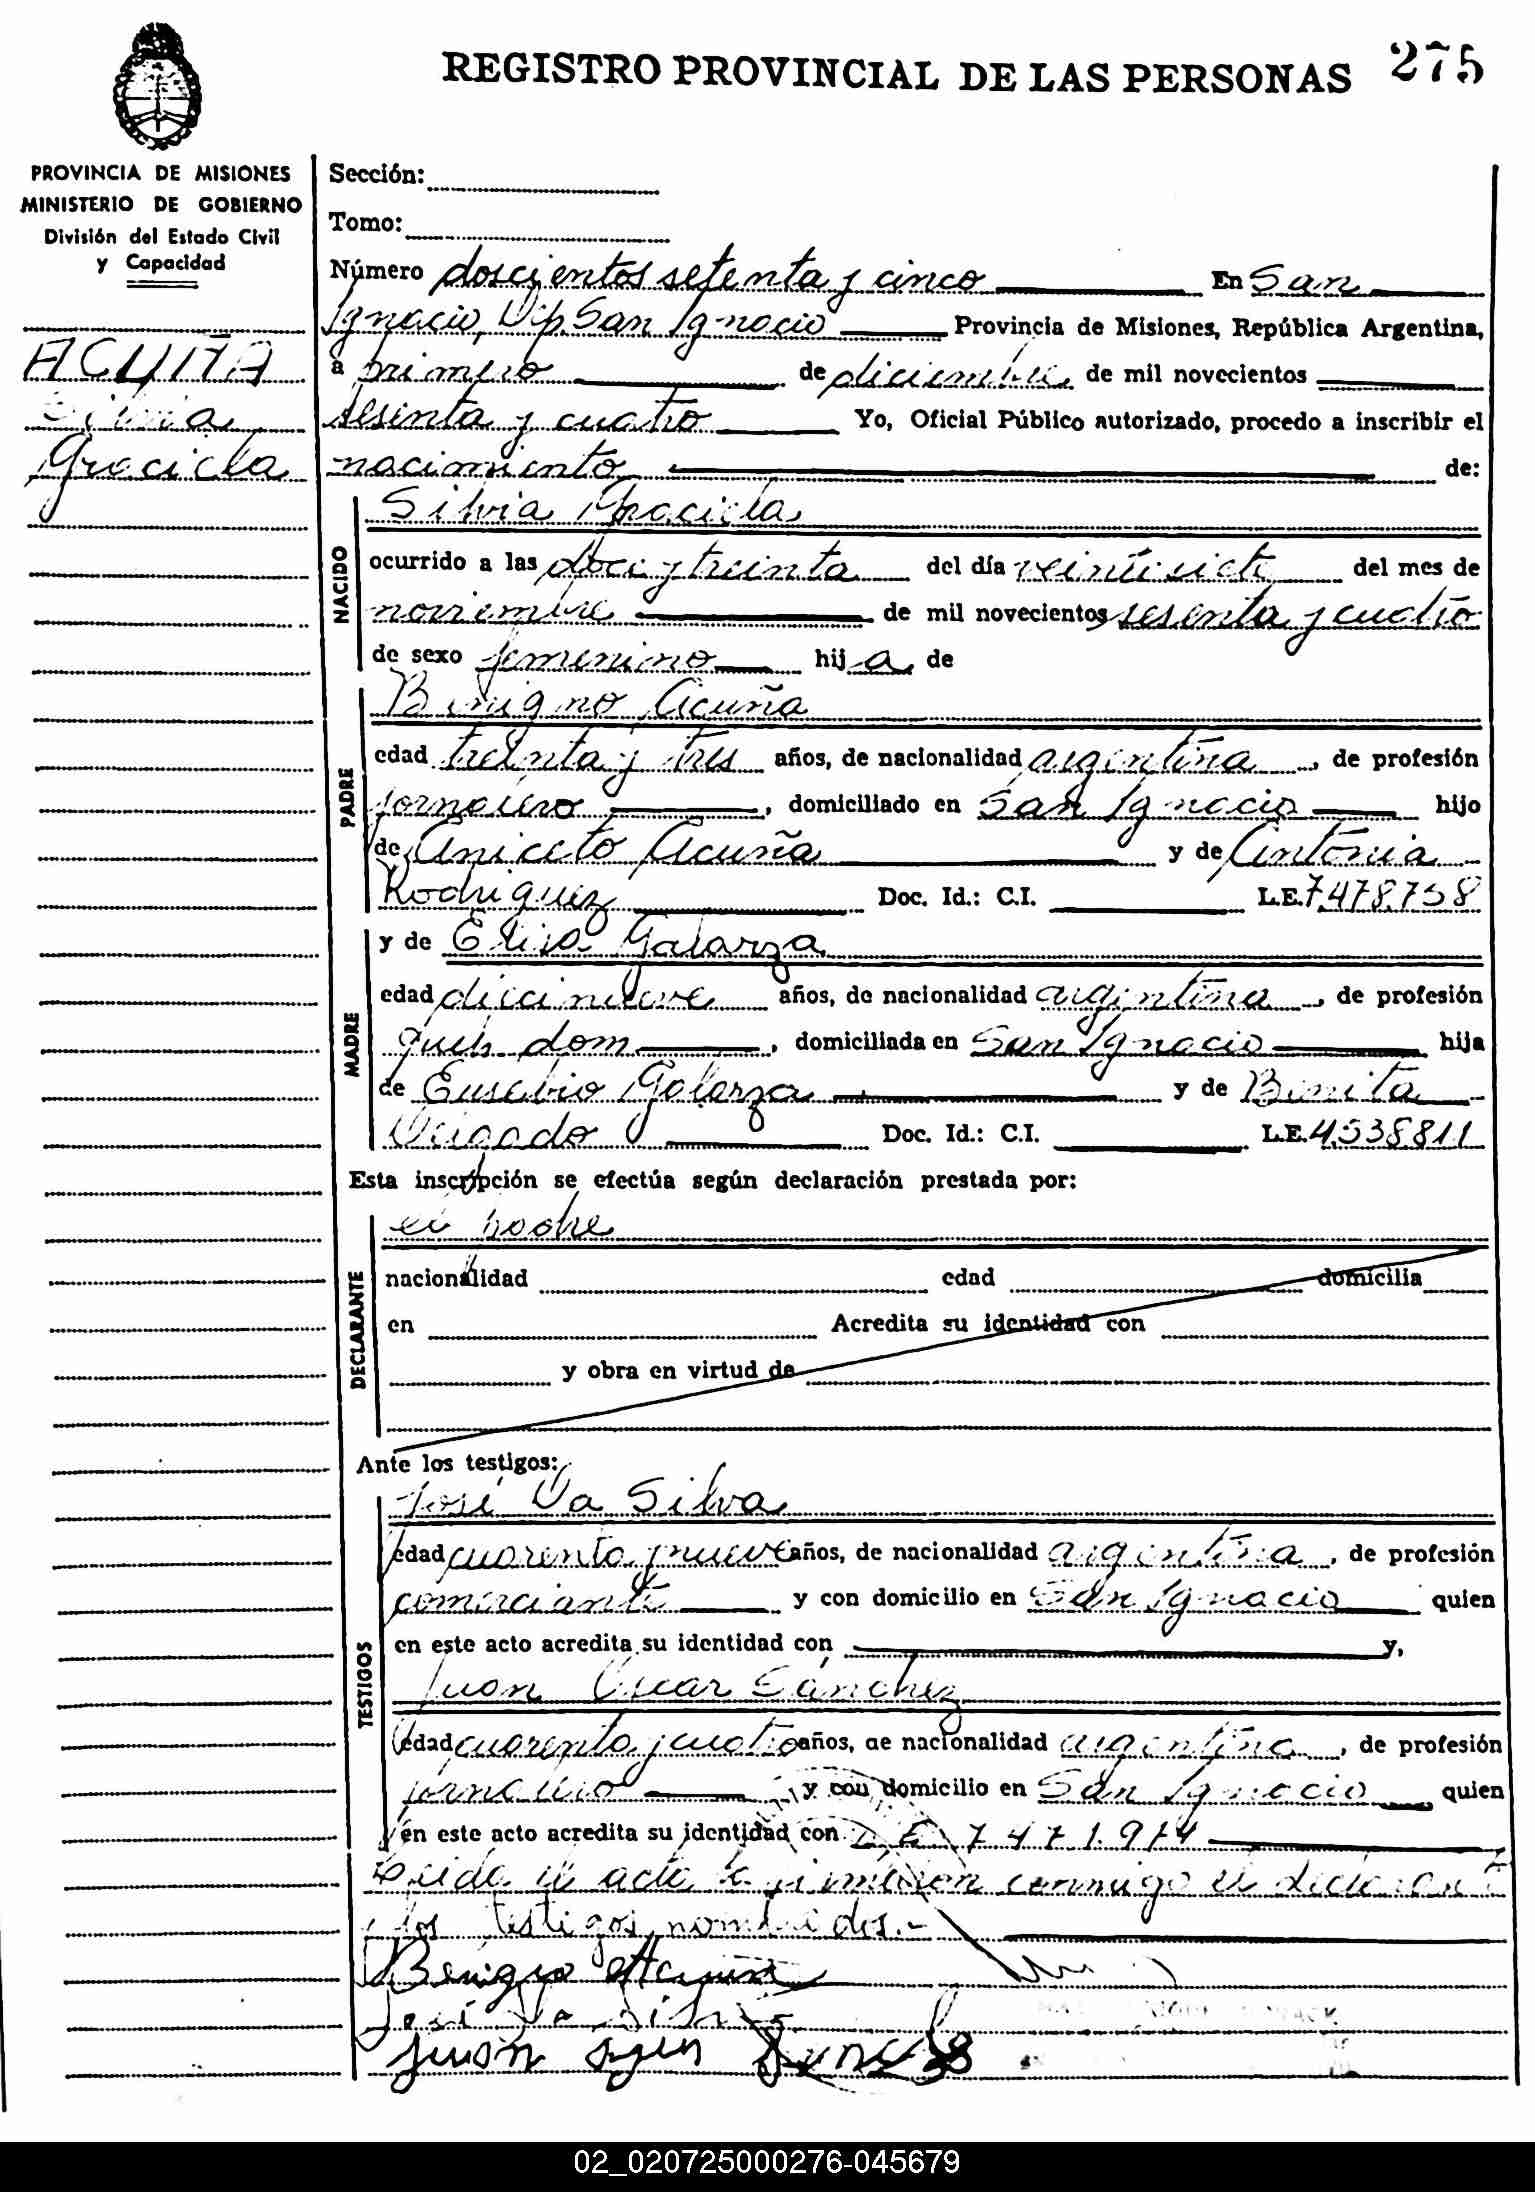 REGISTRO PROVINCIAL DE LAS PERSONAS 275
PROVINCIA DE MISIONES
MINISTERIO DE GOBIERNO
División del Estado Civil
y Capacidad
ACUÑA
Silvia
Graciela
Sección:
Tomo:
Número doscientos setenta y cinco En San
Ignacio, Dep. San Ignacio Provincia de Misiones, República Argentina,
a primero de diciembre de mil novecientos
sesenta y cuatro Yo, Oficial Público autorizado, procedo a inscribir el
nacimiento de:
NACIDO
Silvia Graciela
ocurrido a las doce y treinta del día veintisiete del mes de
noviembre de mil novecientos sesenta y cuatro
de sexo femenino hija de
PADRE
Benigno Acuña
edad treinta y tres años, de nacionalidad argentina, de profesión
jornalero, domiciliado en San Ignacio hijo
de Aniceto Acuña y de Antonia
Rodriguez Doc. Id.: C.I. L.E. 7.478.758
MADRE
y de Elisa Galarza
edad diecinueve años, de nacionalidad argentina, de profesión
queh. dom, domiciliada en San Ignacio hija
de Eusebio Galarza y de Benita
Delgado Doc. Id.: C.I. L.E. 4.538.811
Esta inscripción se efectúa según declaración prestada por:
DECLARANTE
el padre
nacionalidad edad domicilia
en Acredita su identidad con
y obra en virtud de
Ante los testigos:
TESTIGOS
José Da Silva
edad cuarenta y nueve años, de nacionalidad argentina, de profesión
comerciante y con domicilio en San Ignacio quien
en este acto acredita su identidad con y,
Juan Oscar Sánchez
edad cuarenta y cuatro años, de nacionalidad argentina, de profesión
jornalero y con domicilio en San Ignacio quien
en este acto acredita su identidad con L E 7471.974
Leida el acta la firmaron conmigo el declarante
y los testigos nombrados.-
Benigno Acuña
José Da Silva
Juan
02_020725000276-045679